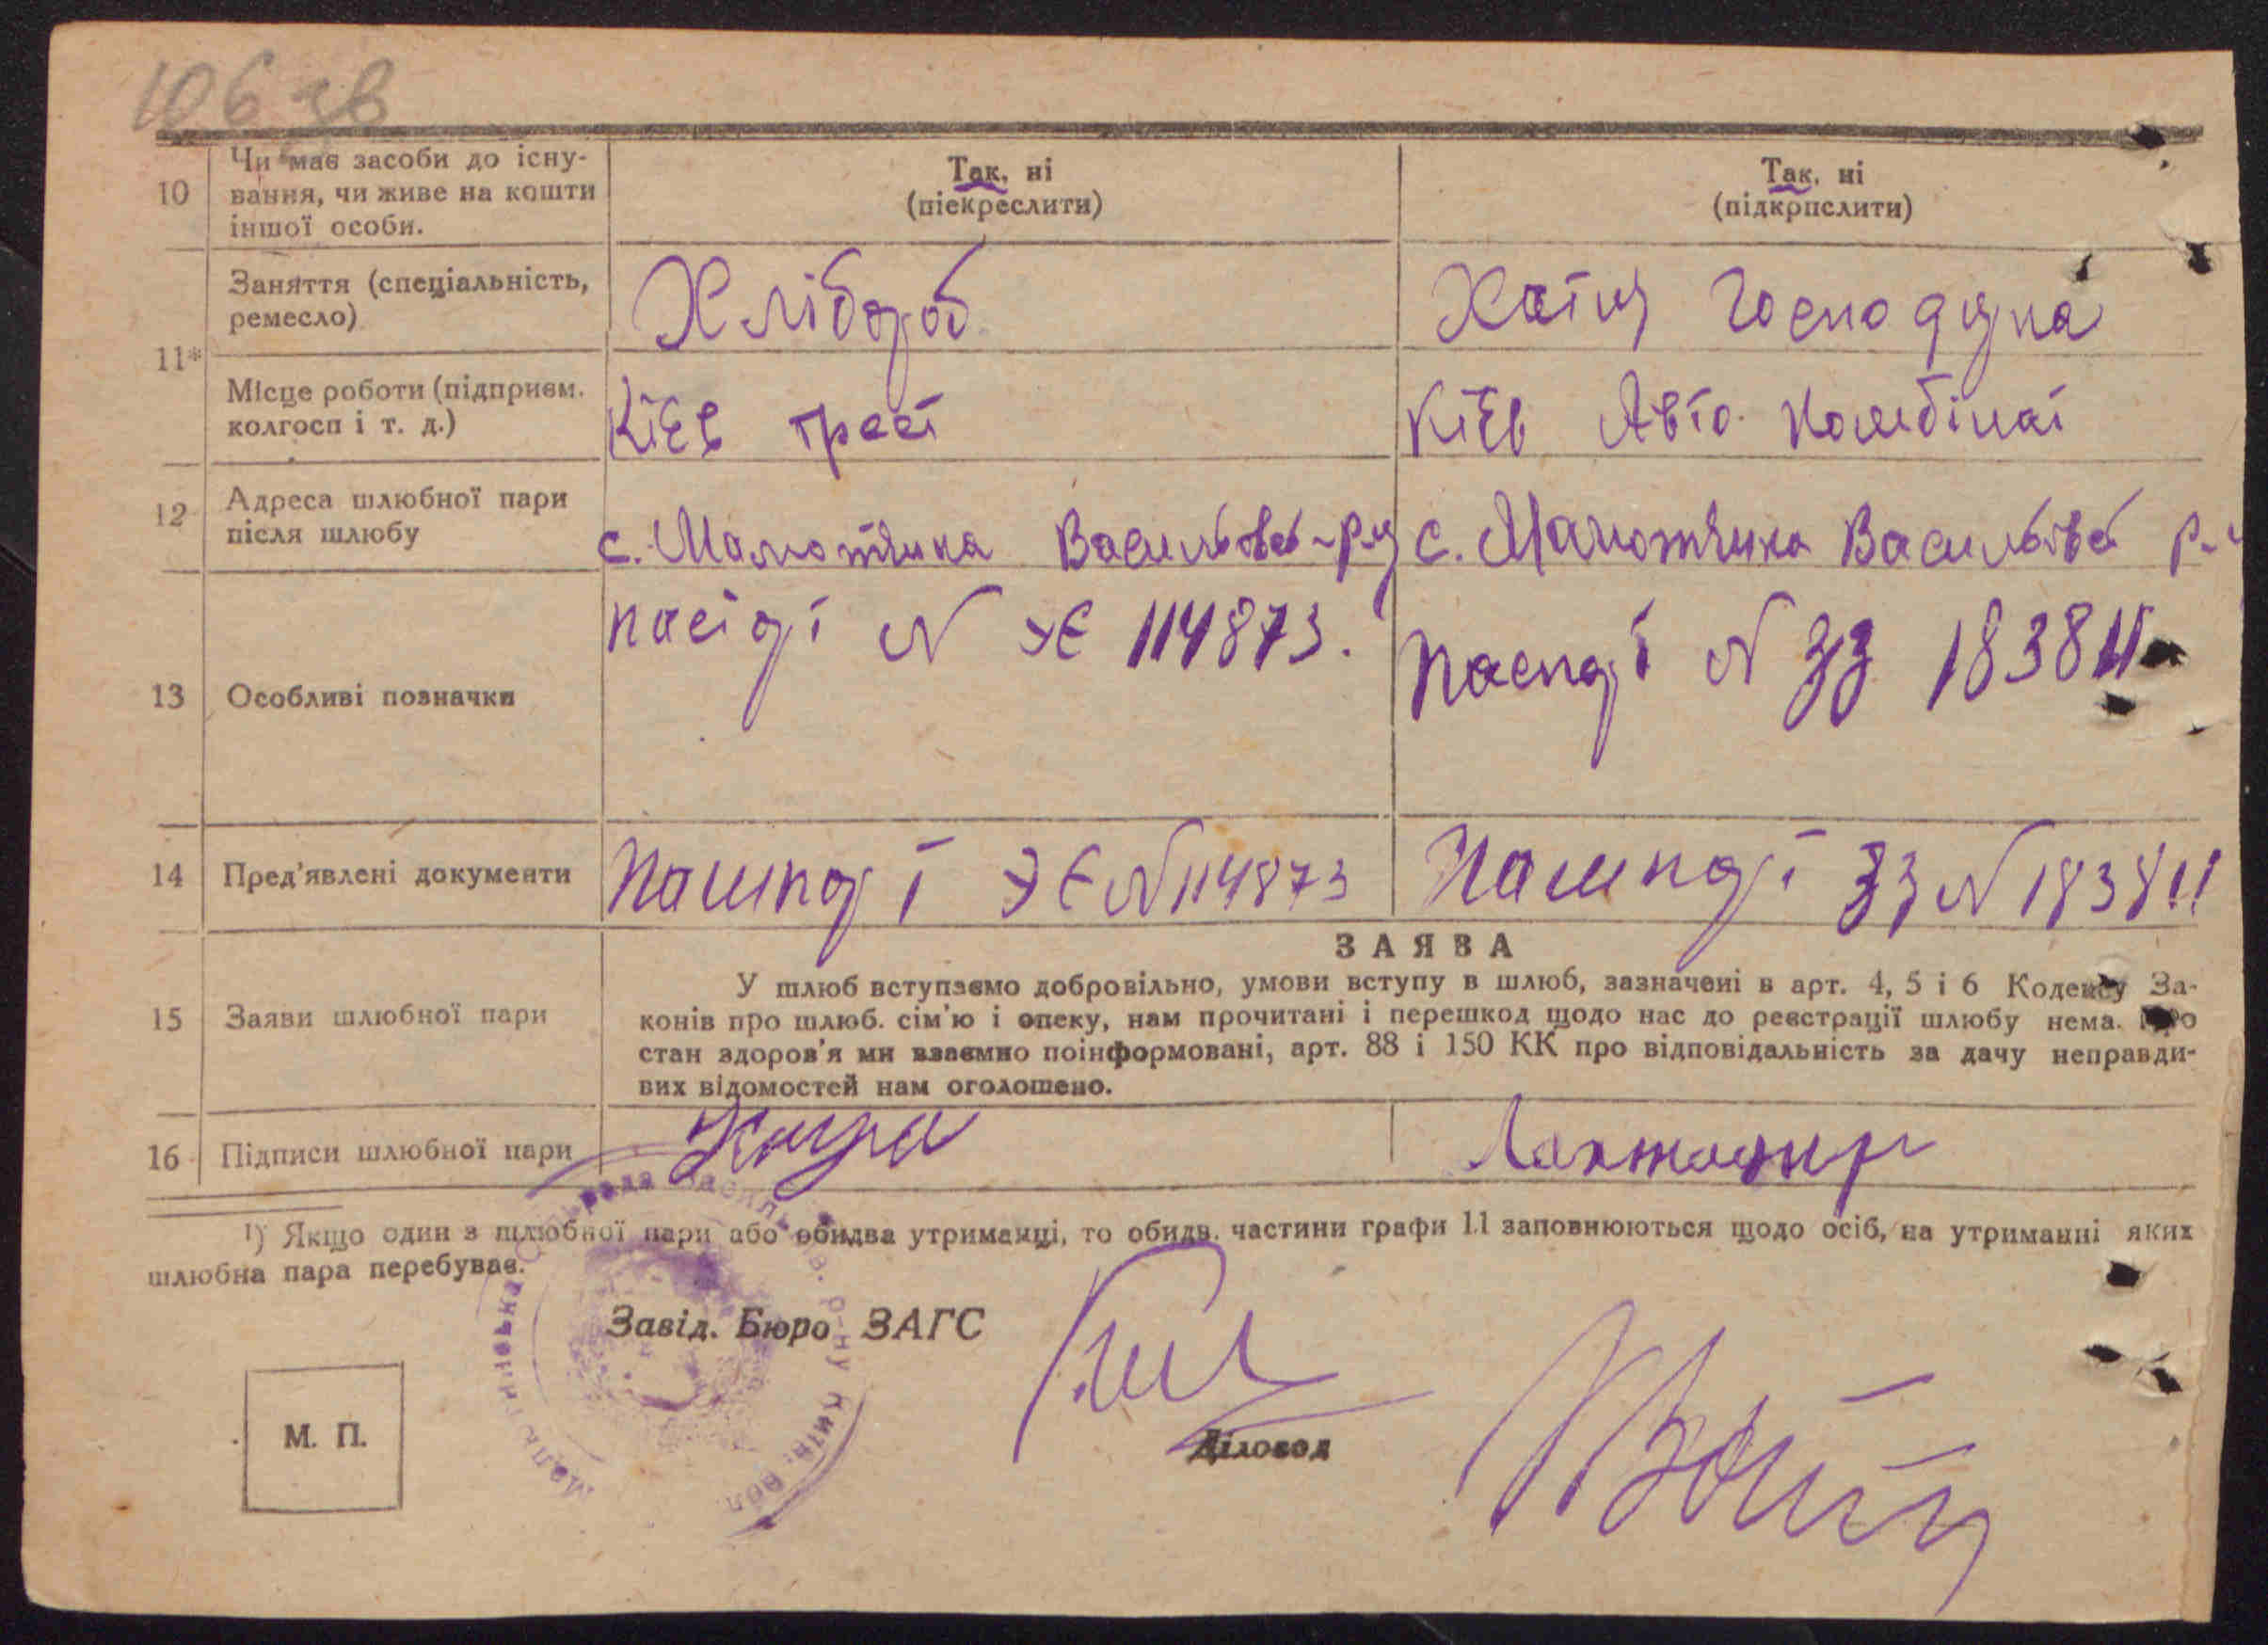 106 зв
10 Чи має засоби до існу-
вання, чи живе на кошти
іншої особи.
Так, ні
(піекреслити)
Так, ні
(підкрпслити)
11* Заняття (спеціальність,
ремесло)
Хлібороб
Хатня Господуна
Місце роботи (підприєм.
колгосп і т. д.)
Кієв трест
Кієв Авто Комбінат
12 Адреса шлюбної пари
після шлюбу
с.
с.
13 Особливі позначки
N ЭЄ 114873.
N ЗЗ 183811
14 Пред'явлені документи
Пашпорт ЭЄ N 114873
Пашпорт ЗЗ N 183811
15 Заяви шлюбної пари
ЗАЯВА
У шлюб вступаємо добровільно, умови вступу в шлюб, зазначені в арт. 4, 5 і 6 Кодексу За-
конів про шлюб. сім'ю і опеку, нам прочитані і перешкод щодо нас до реєстрації шлюбу нема. Про
стан здоров'я ми взаємно поінформовані, арт. 88 і 150 КК про відповідальність за дачу неправди-
вих відомостей нам оголошено.
16 Підписи шлюбної пари
¹) Якщо один з шлюбної пари або обидва утриманці, то обидв. частини графи 11 заповнюються щодо осіб, на утриманні яких
шлюбна пара перебуває.
Завід. Бюро ЗАГС
Діловод
М. П.